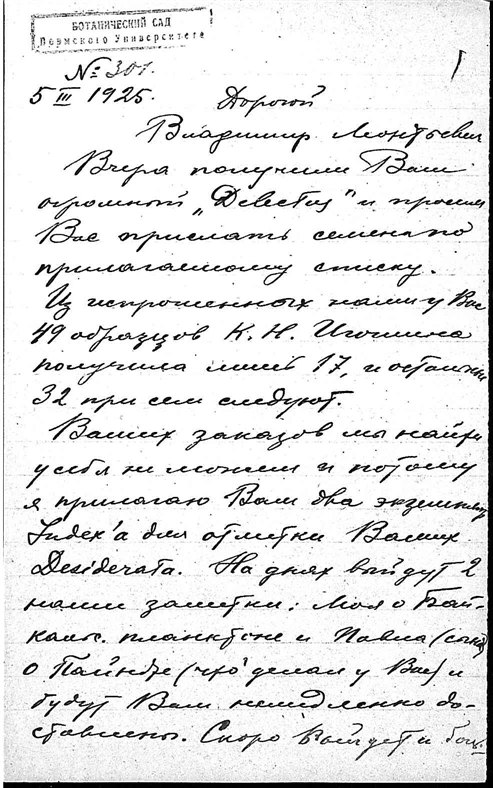 БОТАНИЧЕСКИЙ САД
Пермского Университета
№ 301.
5 III 1925.
Дорогой
Владимир Леонтьевич
Вчера получили Ваш
огромный „Delectus" и просим
Вас прислать семена по
прилагаемому списку.
Из испрошенных нами у Вас
49 образцов К. Н. Игошина
получила лишь 17, и остальные
32 при сем следуют.
Ваших заказов мы найти
у себя не можем и потому
я прилагаю Вам два экземпляра
Index'а для отметки Ваших
Desiderata. На днях выйдут 2
наши заметки: Моя о Бай-
кальс. планктоне и Павла (сына)
о (что делал у Вас) и
будут Вам немедленно до-
ставлены. Скоро выйдет и